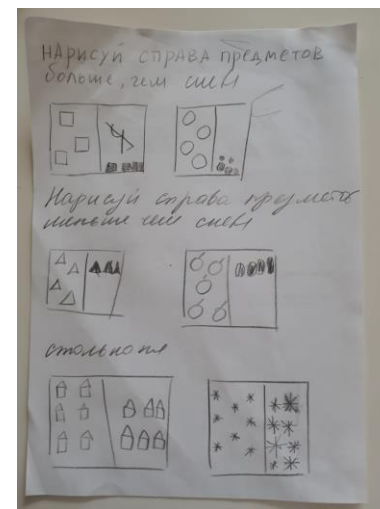 НАРИСУЙ СПРАВА ПРЕДМЕТОВ
больше, чем слева
Нарисуй справа предметов
меньше чем слева
столько же